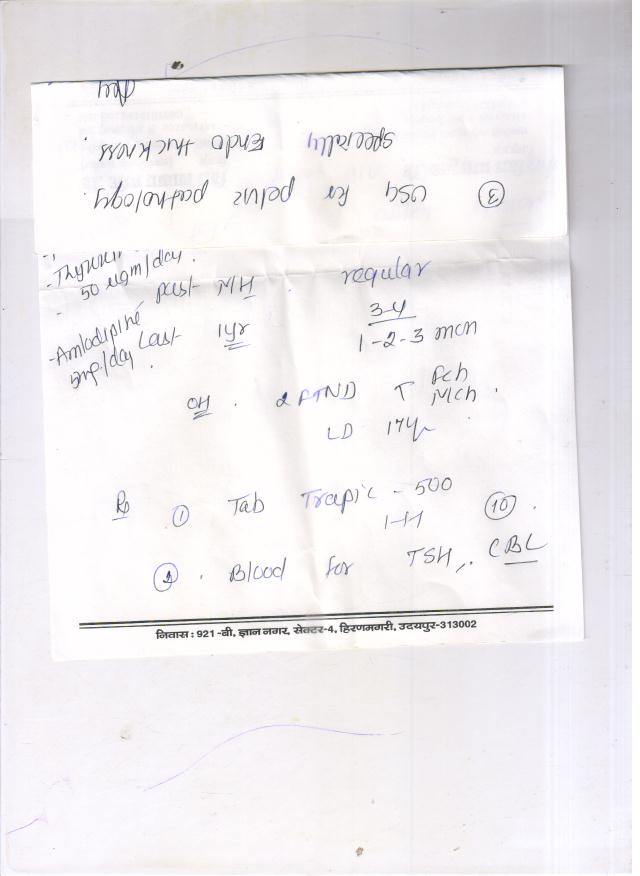 - Thyronorm
50 ugm/day.
- Amlodipine
5mg/day Last
past M/H. regular
1yr 3-4
1-2-3 mcn
OH. 2 FTND T Fch
Mch.
LD 17yr
Rx ① Tab Trapic - 500 ⑩.
1-1-1
2. Blood for TSH, CBC
निवास : 921 -बी, ज्ञान नगर, सेक्टर-4, हिरणमगरी, उदयपुर-313002
③ USG for pelvic pathology,
specially Endo thickness.